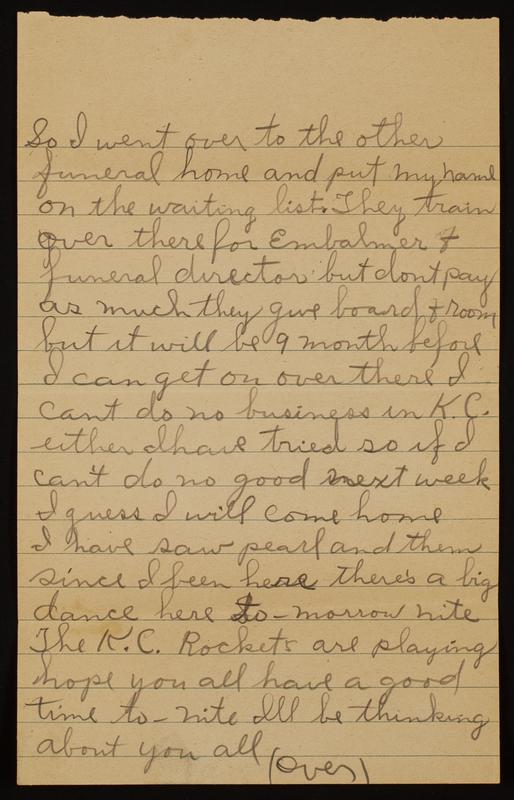 So I went over to the other
funeral home and put my name
on the waiting list. They train
over there for Embalmer &
funeral director but dont pay
as much they give board & room
but it will be 9 month before
I can get on over there I
cant do no business in K.C.
either I have tried so if I
can't do no good next week
I guess I will come home
I have saw pearl and them
since I been here there's a big
dance here to-morrow nite
The K.C. Rockets are playing
hope you all have a good
time to-nite I'll be thinking
about you all
(over)